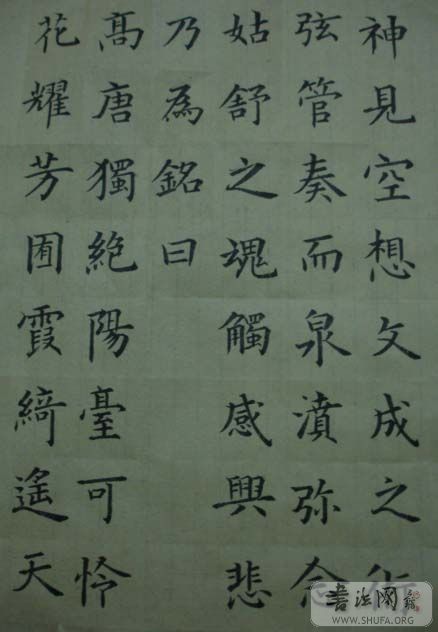 神見空想文成之術
弦管奏而泉濆弥念
姑舒之魂觸感興悲
乃為銘曰
高唐獨絶陽臺可怜
花耀芳囿霞綺遙天
書法网
WWW.SHUFA.ORG